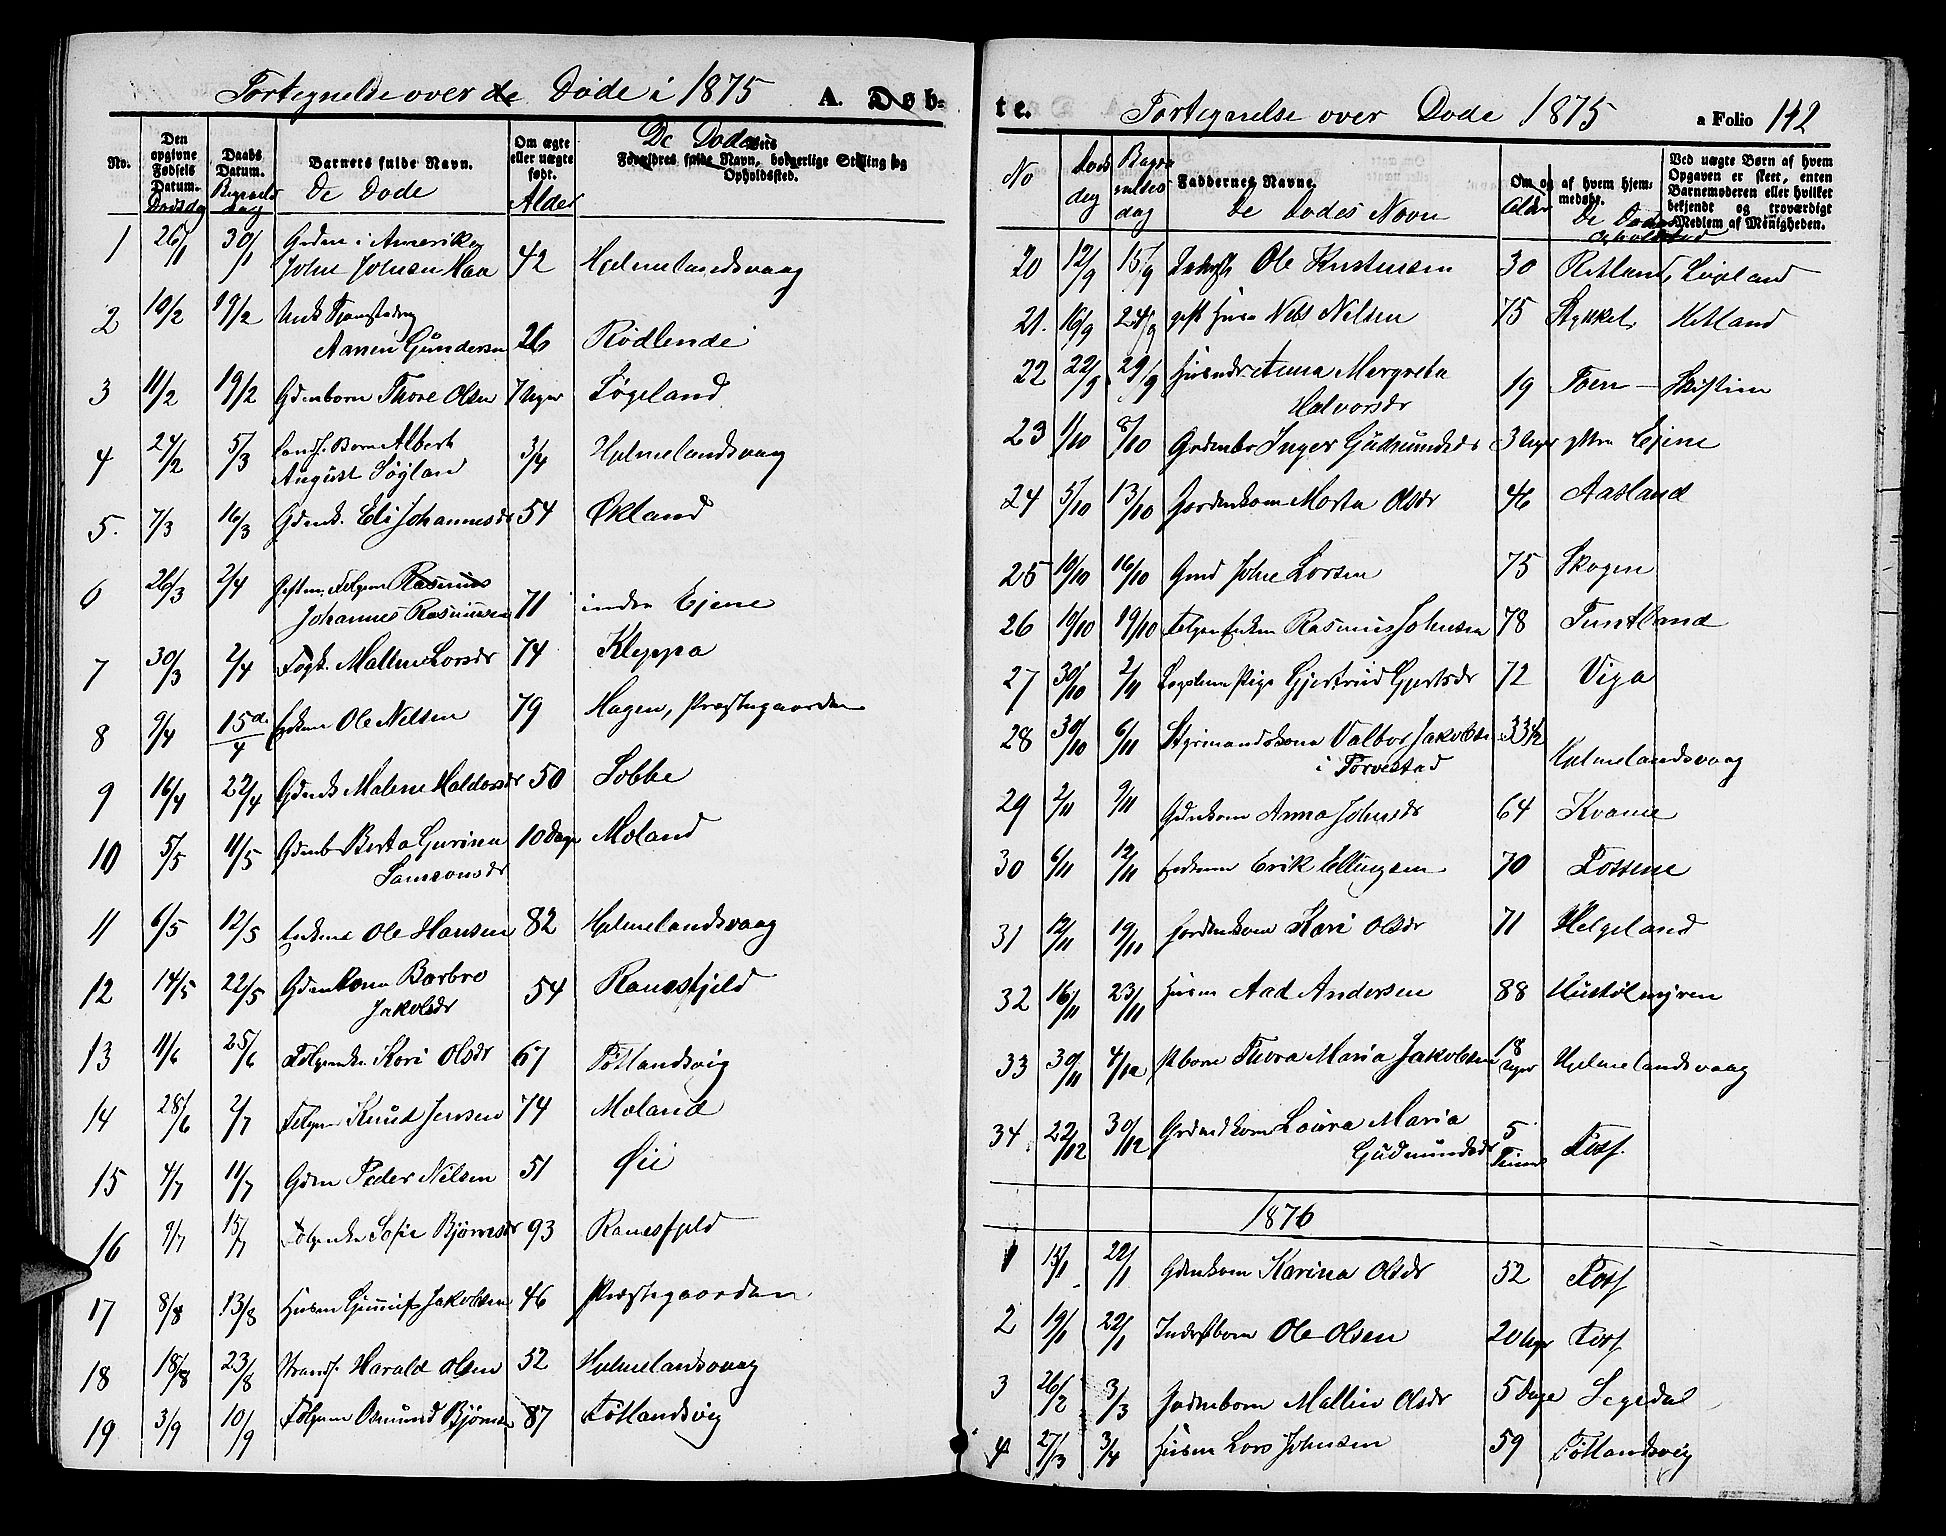 Fortegnelse over de Døde i 1875 A. Døb-
Nr.
Den opgivne Fødsels Datum.
Dødsdag
Daabs Datum.
Begravelsdag
Barnets fulde Navn.
De Døde
Om ægte eller uægte født.
Alder
De Dødes
Forældres fulde Navn, borgerlige Stilling og Opholdssted.
1 26/1 30/1 Gdm i Amerika
John Johnsen Maa 42 Hjelmelandsvaag
2 10/2 19/2
Aanen Gundersen 26 Rødlende
3 11/2 19/2 Gdmbarn Thore Olsen 7 Uger Søgeland
4 24/2 5/3 Landh. Barn Albert
August Søgland 3/4 Hjelmelandsvaag
5. 7/3 16/3 Gdmk. Eli Johannesdr 54 Økland
6 26/3 2/4 Rasmus
Johannes Rasmussen 71 indre Ejene
7 30/3 2/4 Malene Larsdr 74 Kleppa
8 9/4 15de/4 Enkem Ole Nelsen 79 Hagen, Præstegaarden
9 16/4 22/4 Gdmk Malene Haldorsdr 50 Sobbe
10 5/5 11/5 Gdmb Berta Gurina
Samsonsdr 10 Dage Moland
11 6/5 12/5 Enkem Ole Hansen 82 Hjelmelandsvaag
12 14/5 22/5 Gdmkona Barbro
Jakobsdr 54 Ramsfjeld
13 11/6 25/6 Følgemdk. Kari Olsdr 67 Tøtlandsvig
14 28/6 2/7 Følgem Knud Jensen 74 Moland
15 4/7 11/7 Gdm Peder Nilsen 51 Øie
16 9/7 15/7 Følgenke Sofie Bjørnsdr 93 Ramsfjeld
17 8/8 13/8 Husm Gunnuf Jakobsen 46 Præstegaarden
18 18/8 23/8 Strands. Harald Olsen 52 Hjelmelandsvaag
19 3/9 10/9 Følgem Osmund Bjørnsen 87 Tøtlandsvig
te. Fortegnelse over Døde 1875 a Folio 142
No
Døds dag
Begravelses dag
Faddernes Navne.
De Dødes Navn
Om og af hvem hjemmedøbt.
Alder
De Dødes Opholdsted
Ved uægte Børn af hvem Opgaven er skeet, enten Barnemoderen eller hvilket bekjendt og troværdigt Medlem af Menigheden.
20 12/9 15/9 Inderst Ole Kristensen 30 Retland, Søgland
21. 16/9 24/9 gift Husm Nels Nilsen 75 Stykket, Hetland
22 22/9 29/9 Anna Margreta
Halvorsdr 19 Toen —
23 1/10 8/10 Gardmbr Inger Gudmundsdr 3 Uger Ytre Ejene
24 5/10 13/10 Gardmkone Marta Olsdr 46 Aasland
25 10/10 16/10 Gmd John Larsen 75 Skogen
26 10/10 19/10 Følgem Enkem Rasmus Johnsen 78 Tuntland
27 30/10 2/11 Pige Gjertrud Gjertsdr 72 Viga
28 30/10 6/11 Styrmandskone Valbor Jakobsen
i Torvestad 33 1/2 Hjelmelandsvaag
29 2/11 9/11 Gdmkone Anna Johnsdr 64 Kvame
30 6/11 12/11 Enkem Erik Ellingsen 70 Fossene
31 12/11 19/11 Gardmkone Kari Olsdr 71 Helgeland
32 16/11 23/11 Husm Aad Andersen 88 Hustølmyren
33 30/11 4/12 Pbarn Thora Maria Jakobsen 18 Uger Hjelmelandsvaag
34 22/12 30/12 Laura Maria
Gudmundsdr 5 Timer Foss.
1876
1 15/1 22/1 Gdmkone Karina Olsdr 52 Foss
2 19/1 22/1 Inderstbarn Ole Olsen 20 Uger Foss
3 26/2 3/3 Gardmbarn Mallin Olsdr 5 Dage Segedal
4 27/3 3/4 Husm Lars Johnsen 59 Tøtlandsvig